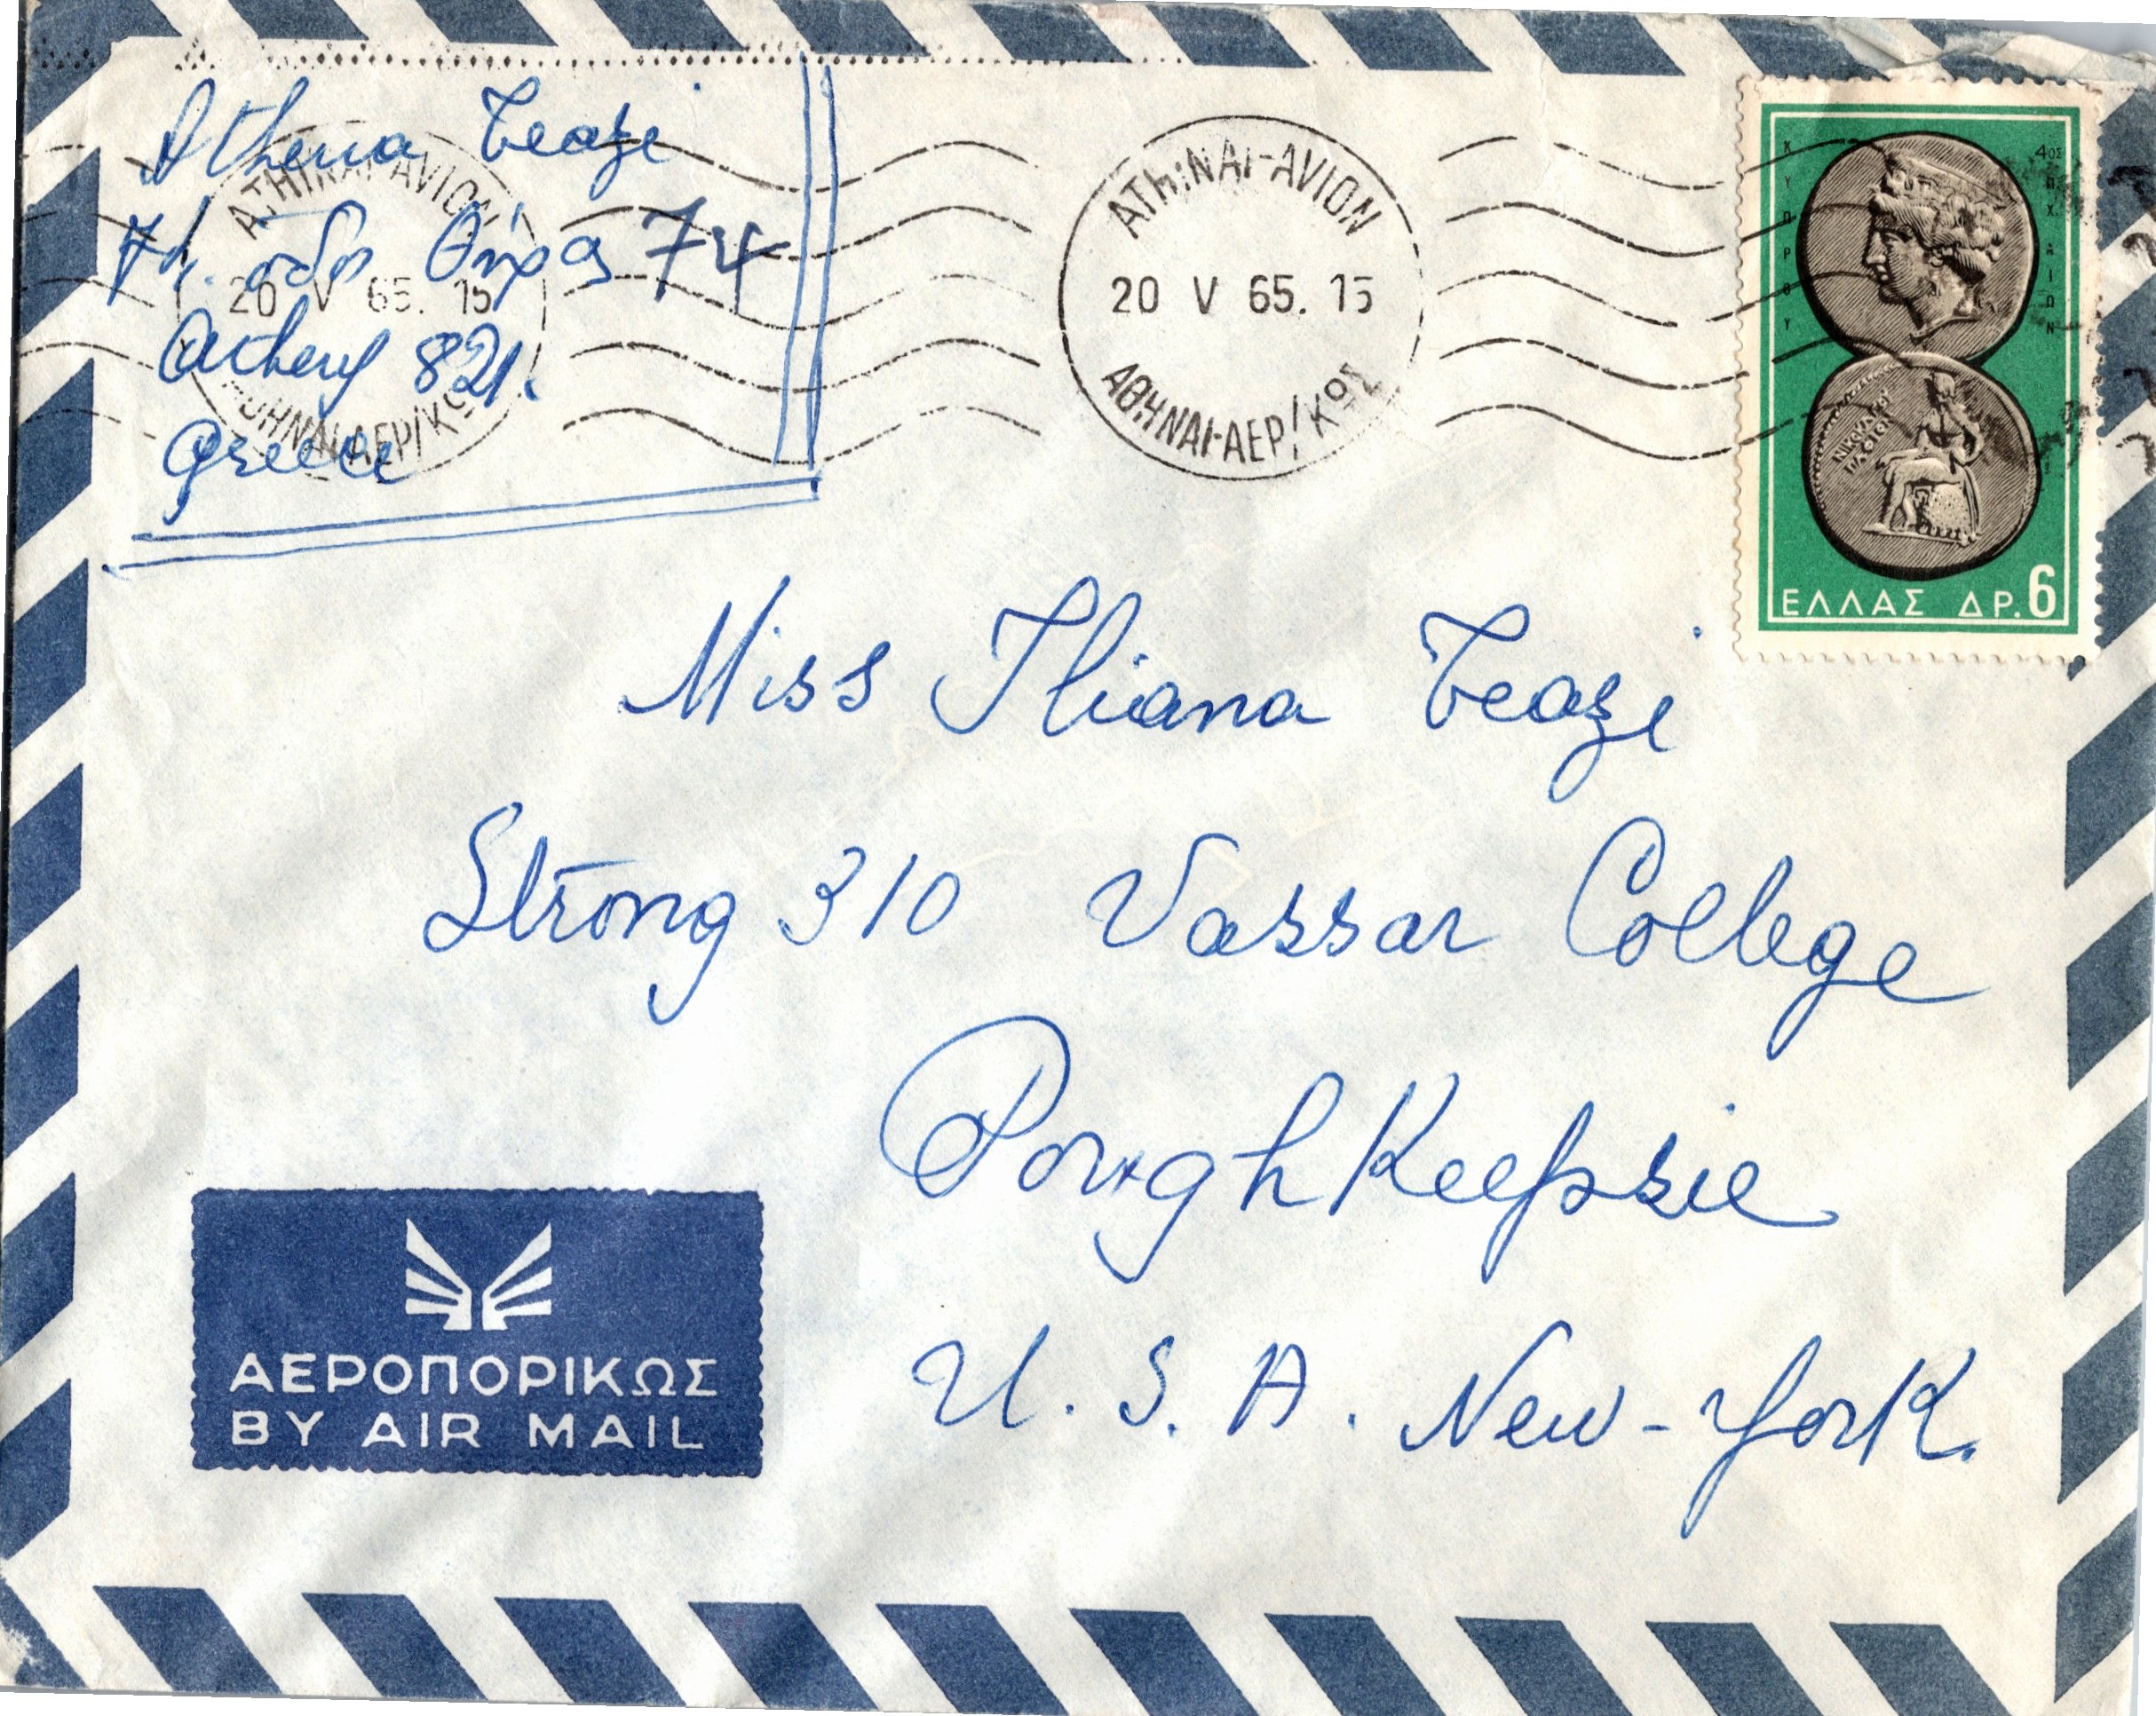 Athena Teazi
οδός Θήρας 74
Athens 821.
Greece
ATHINAI-AVION
20 V 65. 15
ΑΘΗΝΑΙ-ΑΕΡ/ΚΩΣ
ATHINAI-AVION
20 V 65. 15
ΑΘΗΝΑΙ-ΑΕΡ/ΚΩΣ
ΚΥΠΡΟΥ
4ος Π.Χ. ΑΙΩΝ
ΕΛΛΑΣ ΔΡ.6
Miss Iliana Teazi
Strong 310 Vassar College
Poughkeepsie
U.S.A. New-York.
ΑΕΡΟΠΟΡΙΚΩΣ
BY AIR MAIL